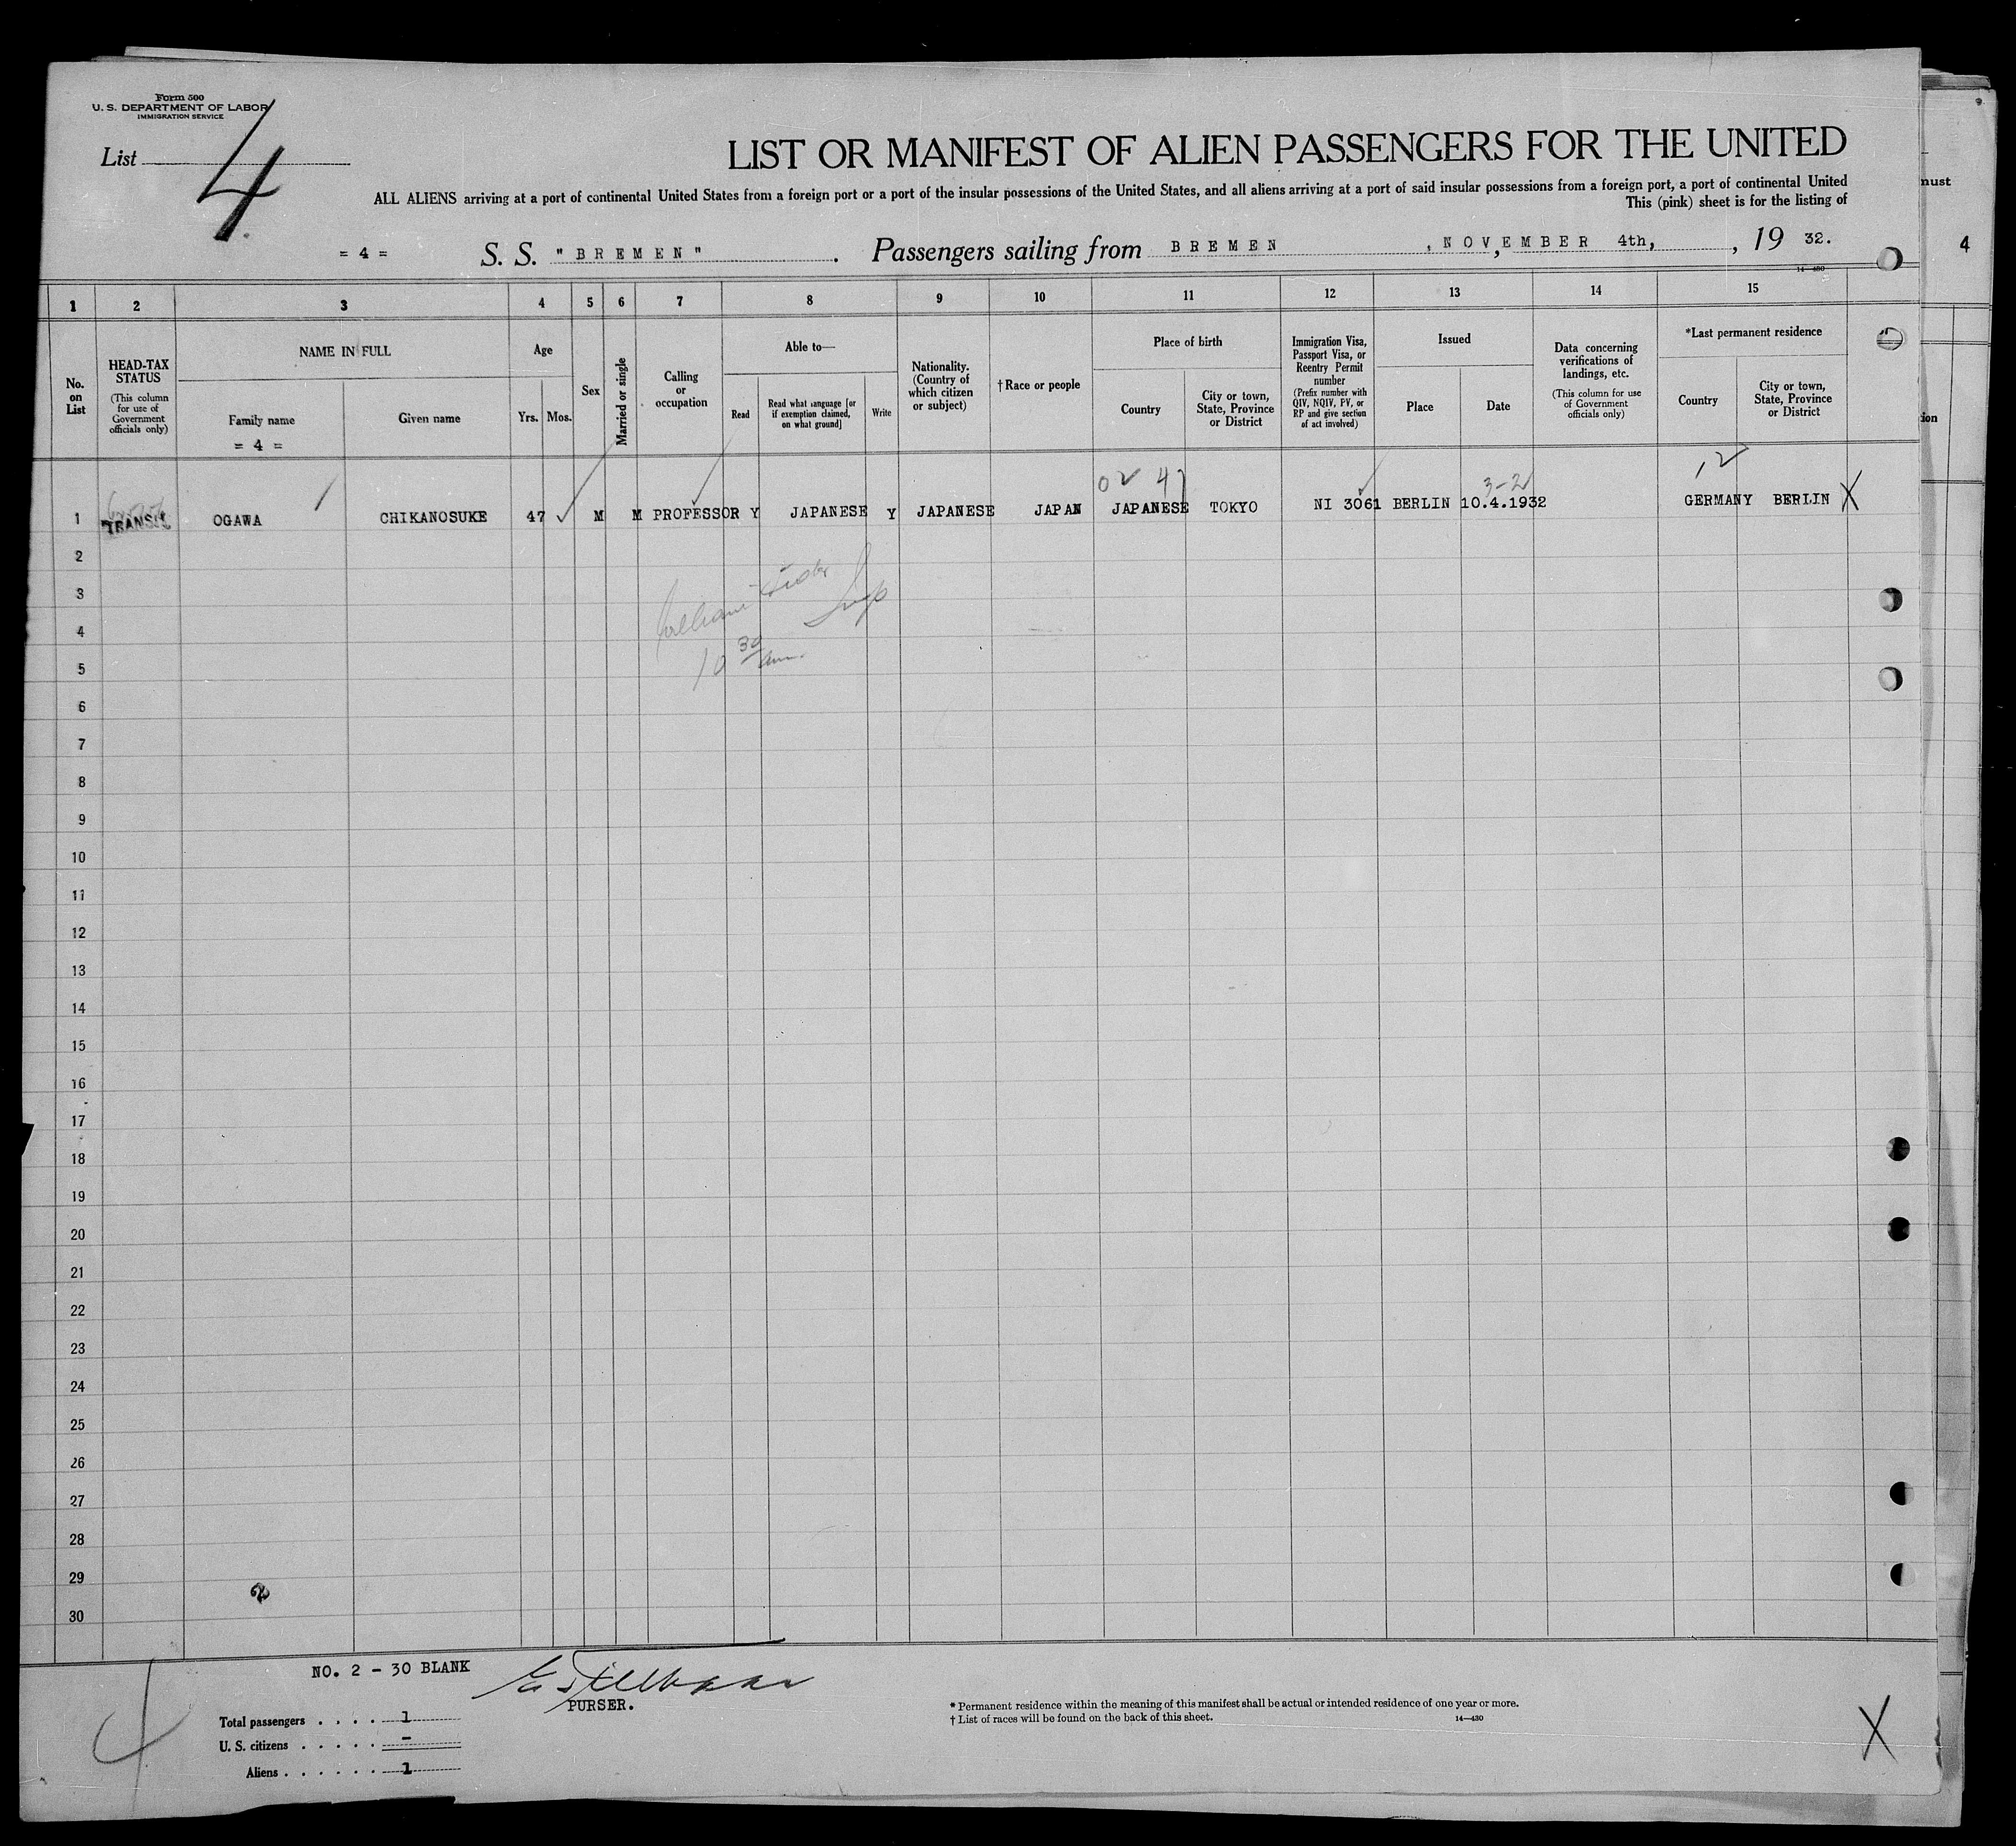 Form 500
U. S. DEPARTMENT OF LABOR
IMMIGRATION SERVICE
List 4
LIST OR MANIFEST OF ALIEN PASSENGERS FOR THE UNITED
ALL ALIENS arriving at a port of continental United States from a foreign port or a port of the insular possessions of the United States, and all aliens arriving at a port of said insular possessions from a foreign port, a port of continental United
This (pink) sheet is for the listing of
must
= 4 = S. S. "BREMEN". Passengers sailing from BREMEN, NOVEMBER 4th, , 19 32.
4
14—430
1 2 3 4 5 6 7 8 9 10 11 12 13 14 15
No. on List
HEAD-TAX STATUS
(This column for use of Government officials only)
NAME IN FULL
Family name
= 4 =
Given name
Age
Yrs. Mos.
Sex
Married or single
Calling or occupation
Able to—
Read
Read what language [or if exemption claimed, on what ground]
Write
Nationality. (Country of which citizen or subject)
†Race or people
Place of birth
Country
City or town, State, Province or District
Immigration Visa, Passport Visa, or Reentry Permit number
(Prefix number with QIV, NQIV, PV, or RP and give section of act involved)
Issued
Place
Date
Data concerning verifications of landings, etc.
(This column for use of Government officials only)
*Last permanent residence
Country
City or town, State, Province or District
02 47
3-2
12
1 TRANSIT OGAWA CHIKANOSUKE 47 M M PROFESSOR Y JAPANESE Y JAPANESE JAPAN JAPANESE TOKYO NI 3061 BERLIN 10.4.1932 GERMANY BERLIN X
2
3
4
10 30 am
5
6
7
8
9
10
11
12
13
14
15
16
17
18
19
20
21
22
23
24
25
26
27
28
29
30
NO. 2 - 30 BLANK
PURSER.
Total passengers . . . . 1
U. S. citizens . . . . . -
Aliens . . . . . . 1
* Permanent residence within the meaning of this manifest shall be actual or intended residence of one year or more.
† List of races will be found on the back of this sheet.
14—430
X